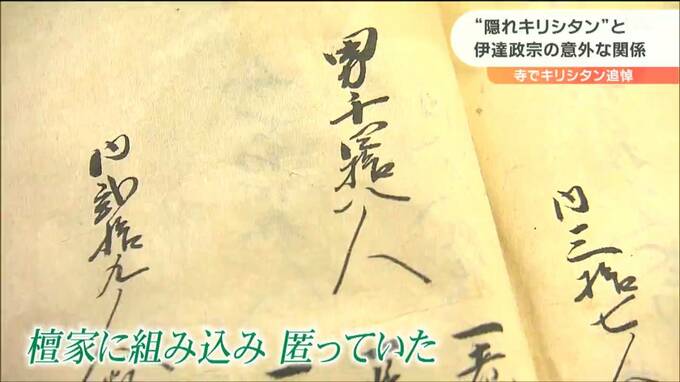 “隠れキリシタン”と
伊達政宗の意外な関係
寺でキリシタン追悼
内三拾七人
男千 拾八人
内弐拾九人
檀家に組み込み 匿っていた